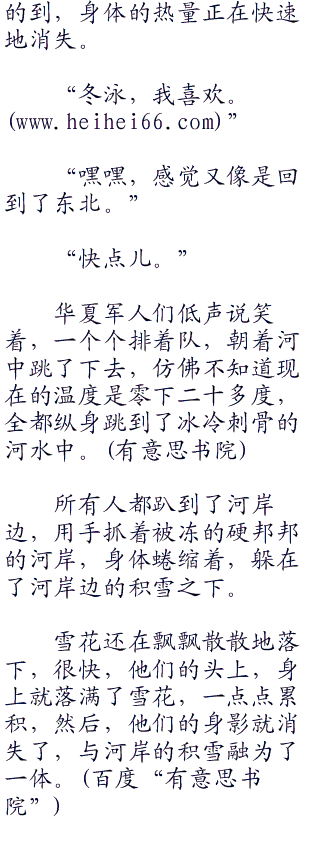 的到，身体的热量正在快速
地消失。
“冬泳，我喜欢。
(www.heihei66.com)”
“嘿嘿，感觉又像是回
到了东北。”
“快点儿。”
华夏军人们低声说笑
着，一个个排着队，朝着河
中跳了下去，仿佛不知道现
在的温度是零下二十多度，
全都纵身跳到了冰冷刺骨的
河水中。(有意思书院)
所有人都趴到了河岸
边，用手抓着被冻的硬邦邦
的河岸，身体蜷缩着，躲在
了河岸边的积雪之下。
雪花还在飘飘散散地落
下，很快，他们的头上，身
上就落满了雪花，一点点累
积，然后，他们的身影就消
失了，与河岸的积雪融为了
一体。(百度“有意思书
院”)